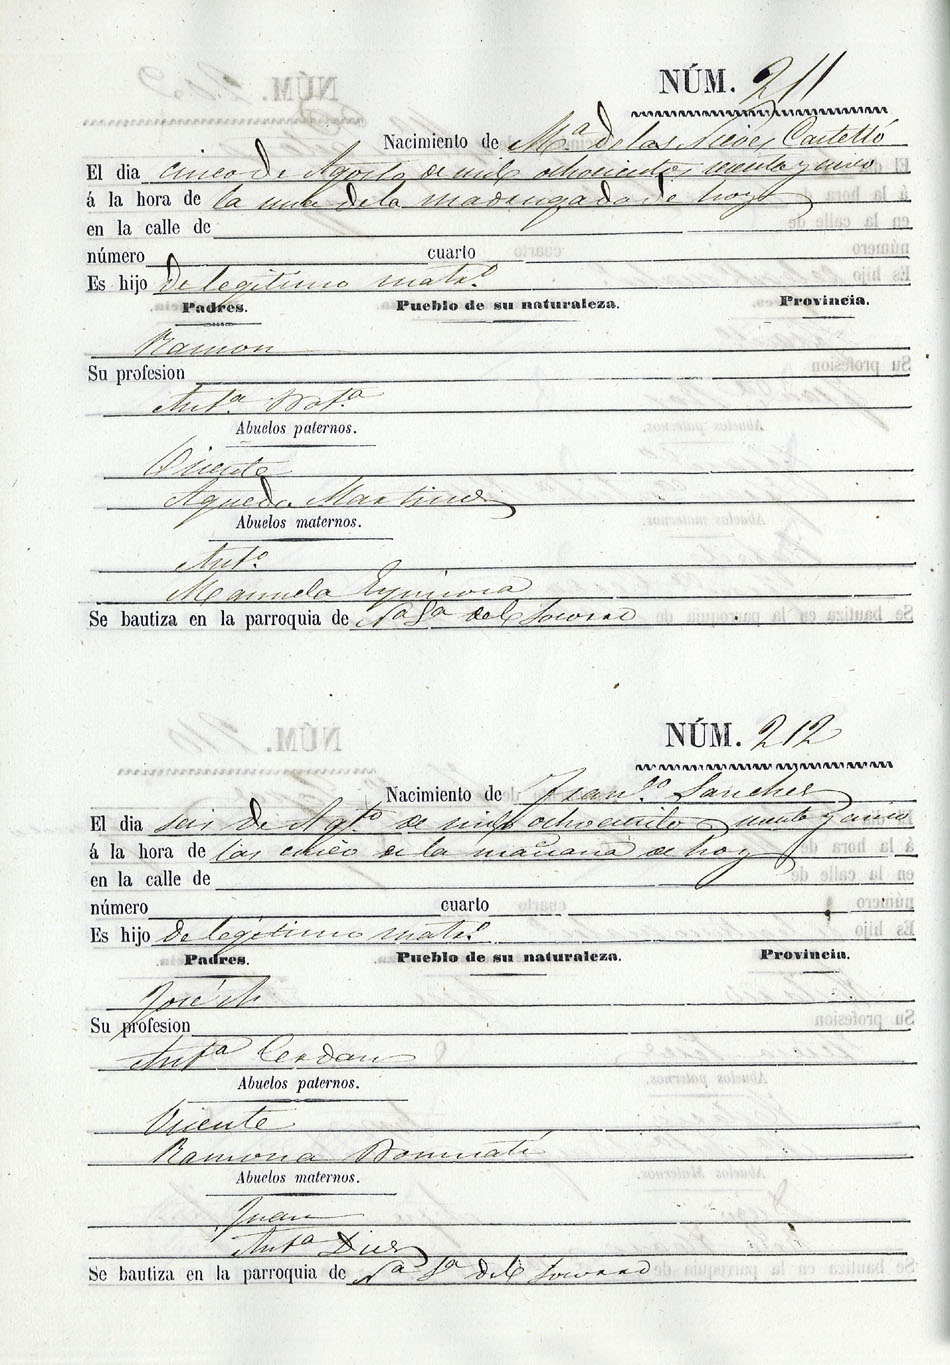 NÚM. 211
Nacimiento de Mª de las Nieves Castelló
El dia cinco de Agosto de mil ochocientos y cinco
á la hora de la una de la madrugada de hoy
en la calle de
número cuarto
Es hijo de legítimo matº
Padres. Pueblo de su naturaleza. Provincia.
Ramon
Su profesion
Antª
Abuelos paternos.
Vicente
Agueda Martinez
Abuelos maternos.
Antº
Manuela
Se bautiza en la parroquia de Nª Sª del Socorro
NÚM. 212
Nacimiento de Franºº Sanchez
El dia seis de Agto de mil ochocientos y cinco
á la hora de las cinco de la mañana de hoy
en la calle de
número cuarto
Es hijo de legítimo matº
Padres. Pueblo de su naturaleza. Provincia.
José
Su profesion
Antª Cerdan
Abuelos paternos.
Vicente
Ramona
Abuelos maternos.
Juan
Antª Dies
Se bautiza en la parroquia de Nª Sª del Socorro